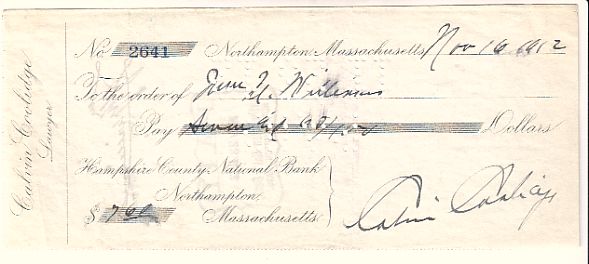 Calvin Coolidge
Lawyer
No 2641 Northampton, Massachusetts, Nov 16 1912
To the order of
Pay Dollars
Hampshire County National Bank
Northampton,
Massachusetts
$
Calvin Coolidge